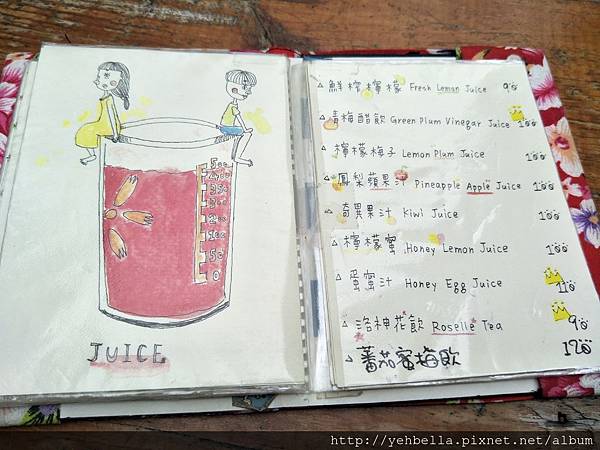 500
400
350
300
200
100
50
0
JUICE
△ 鮮榨檸檬 Fresh Lemon Juice 90
△ 青梅醋飲 Green Plum Vinegar Juice 100
△ 檸檬梅子 Lemon Plum Juice 100
△ 鳳梨蘋果汁 Pineapple Apple Juice 100
△ 奇異果汁 Kiwi Juice 100
△ 檸檬蜜 Honey Lemon Juice 100
△ 蛋蜜汁 Honey Egg Juice 110
△ 洛神花飲 Roselle Tea 90
△ 蕃茄蜜梅飲 120
http://yehbella.pixnet.net/album